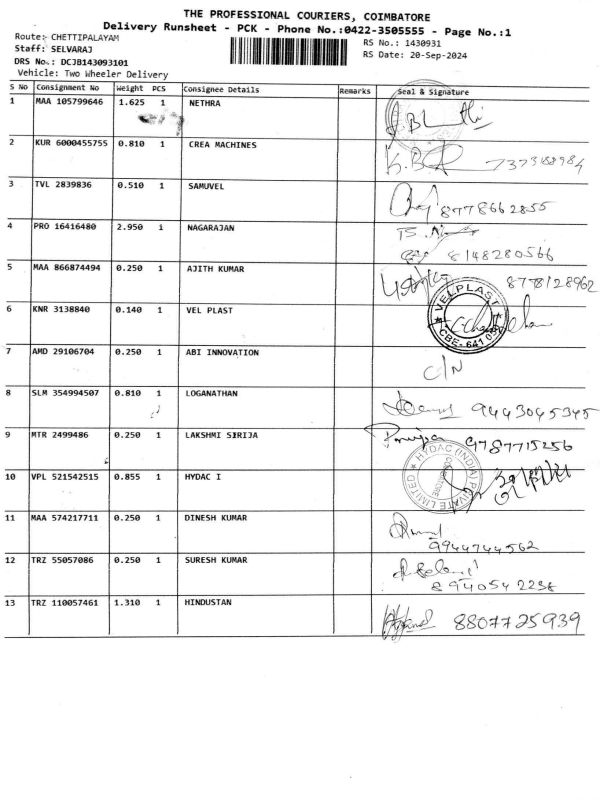 THE PROFESSIONAL COURIERS, COIMBATORE
Delivery Runsheet - PCK - Phone No.:0422-3505555 - Page No.:1
Route: CHETTIPALAYAM
RS No.: 1430931
Staff: SELVARAJ
RS Date: 20-Sep-2024
DRS No.: DCJB143093101
Vehicle: Two Wheeler Delivery
S No Consignment No Weight PCS Consignee Details Remarks Seal & Signature
1 MAA 105799646 1.625 1 NETHRA
2 KUR 6000455755 0.810 1 CREA MACHINES 7373188984
3 TVL 2839836 0.510 1 SAMUVEL 8778662855
4 PRO 16416480 2.950 1 NAGARAJAN 8148280566
5 MAA 866874494 0.250 1 AJITH KUMAR 8778128962
6 KNR 3138840 0.140 1 VEL PLAST VELPLAST CBE-641
7 AMD 29106704 0.250 1 ABI INNOVATION C/N
8 SLM 354994507 0.810 1 LOGANATHAN 9443045345
9 MTR 2499486 0.250 1 LAKSHMI SIRIJA 9787715256
10 VPL 521542515 0.855 1 HYDAC I HYDAC (INDIA) PRIVATE LIMITED
11 MAA 574217711 0.250 1 DINESH KUMAR 9944744562
12 TRZ 55057086 0.250 1 SURESH KUMAR 8940542238
13 TRZ 110057461 1.310 1 HINDUSTAN 8807725939